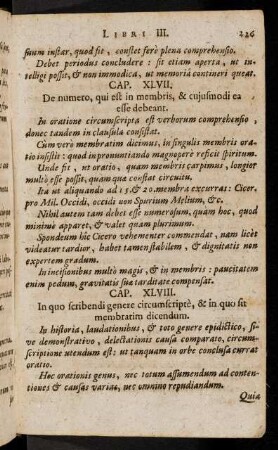 LIBRI III. 226
suum instar, quod sit, constet ferè plena comprehensio.
Debet periodus concludere : sit etiam aperta, ut in-
telligi possit, & non immodica, ut memoriâ contineri queat.
CAP. XLVII.
De numero, qui est in membris, & cujusmodi ea
esse debeant.
In oratione circumscripta est verborum comprehensio,
donec tandem in clausula consistat.
Cum verò membratim dicimus, in singulis membris ora-
tio insistit : quod in pronuntianda magnoperè reficit spiritum.
Unde fit, ut oratio, quam membris carpimus, longior
multò esse possit, quam qua constat circuitu.
Ita ut aliquando ad 15. & 20. membra excurrat: Cicer.
pro Mil. Occidi, occidi non Spurium Melium, &c.
Nihil autem tam debet esse numerosum, quam hoc, quod
minimè apparet, & valet quam plurimum.
Spondeum hic Cicero vehementer commendat, nam licèt
videatur tardior, habet tamen stabilem, & dignitatis non
expertem gradum.
In incisionibus multò magis, & in membris : paucitatem
enim pedum, gravitatis suæ tarditate compensat.
CAP. XLVIII.
In quo scribendi genere circumscriptè, & in quo sit
membratim dicendum.
In historia, laudationibus, & toto genere epidictico, si-
ve demonstrativo, delectationis causa comparato, circum-
scriptione utendum est: ut tanquam in orbe conclusa currat
oratio.
Hoc orationis genus, nec totum assumendum ad conten-
tiones & causas varias, nec omnino repudiandum.
Quia